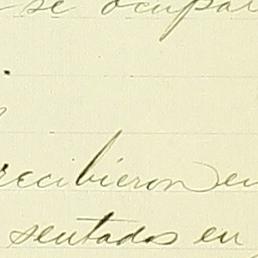 se ocupar
recibieron en
sentados en